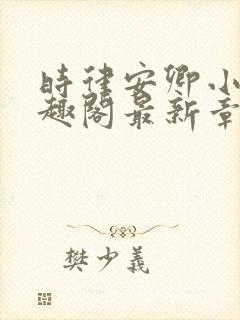 时律安卿小
趣阁最新章
樊少義